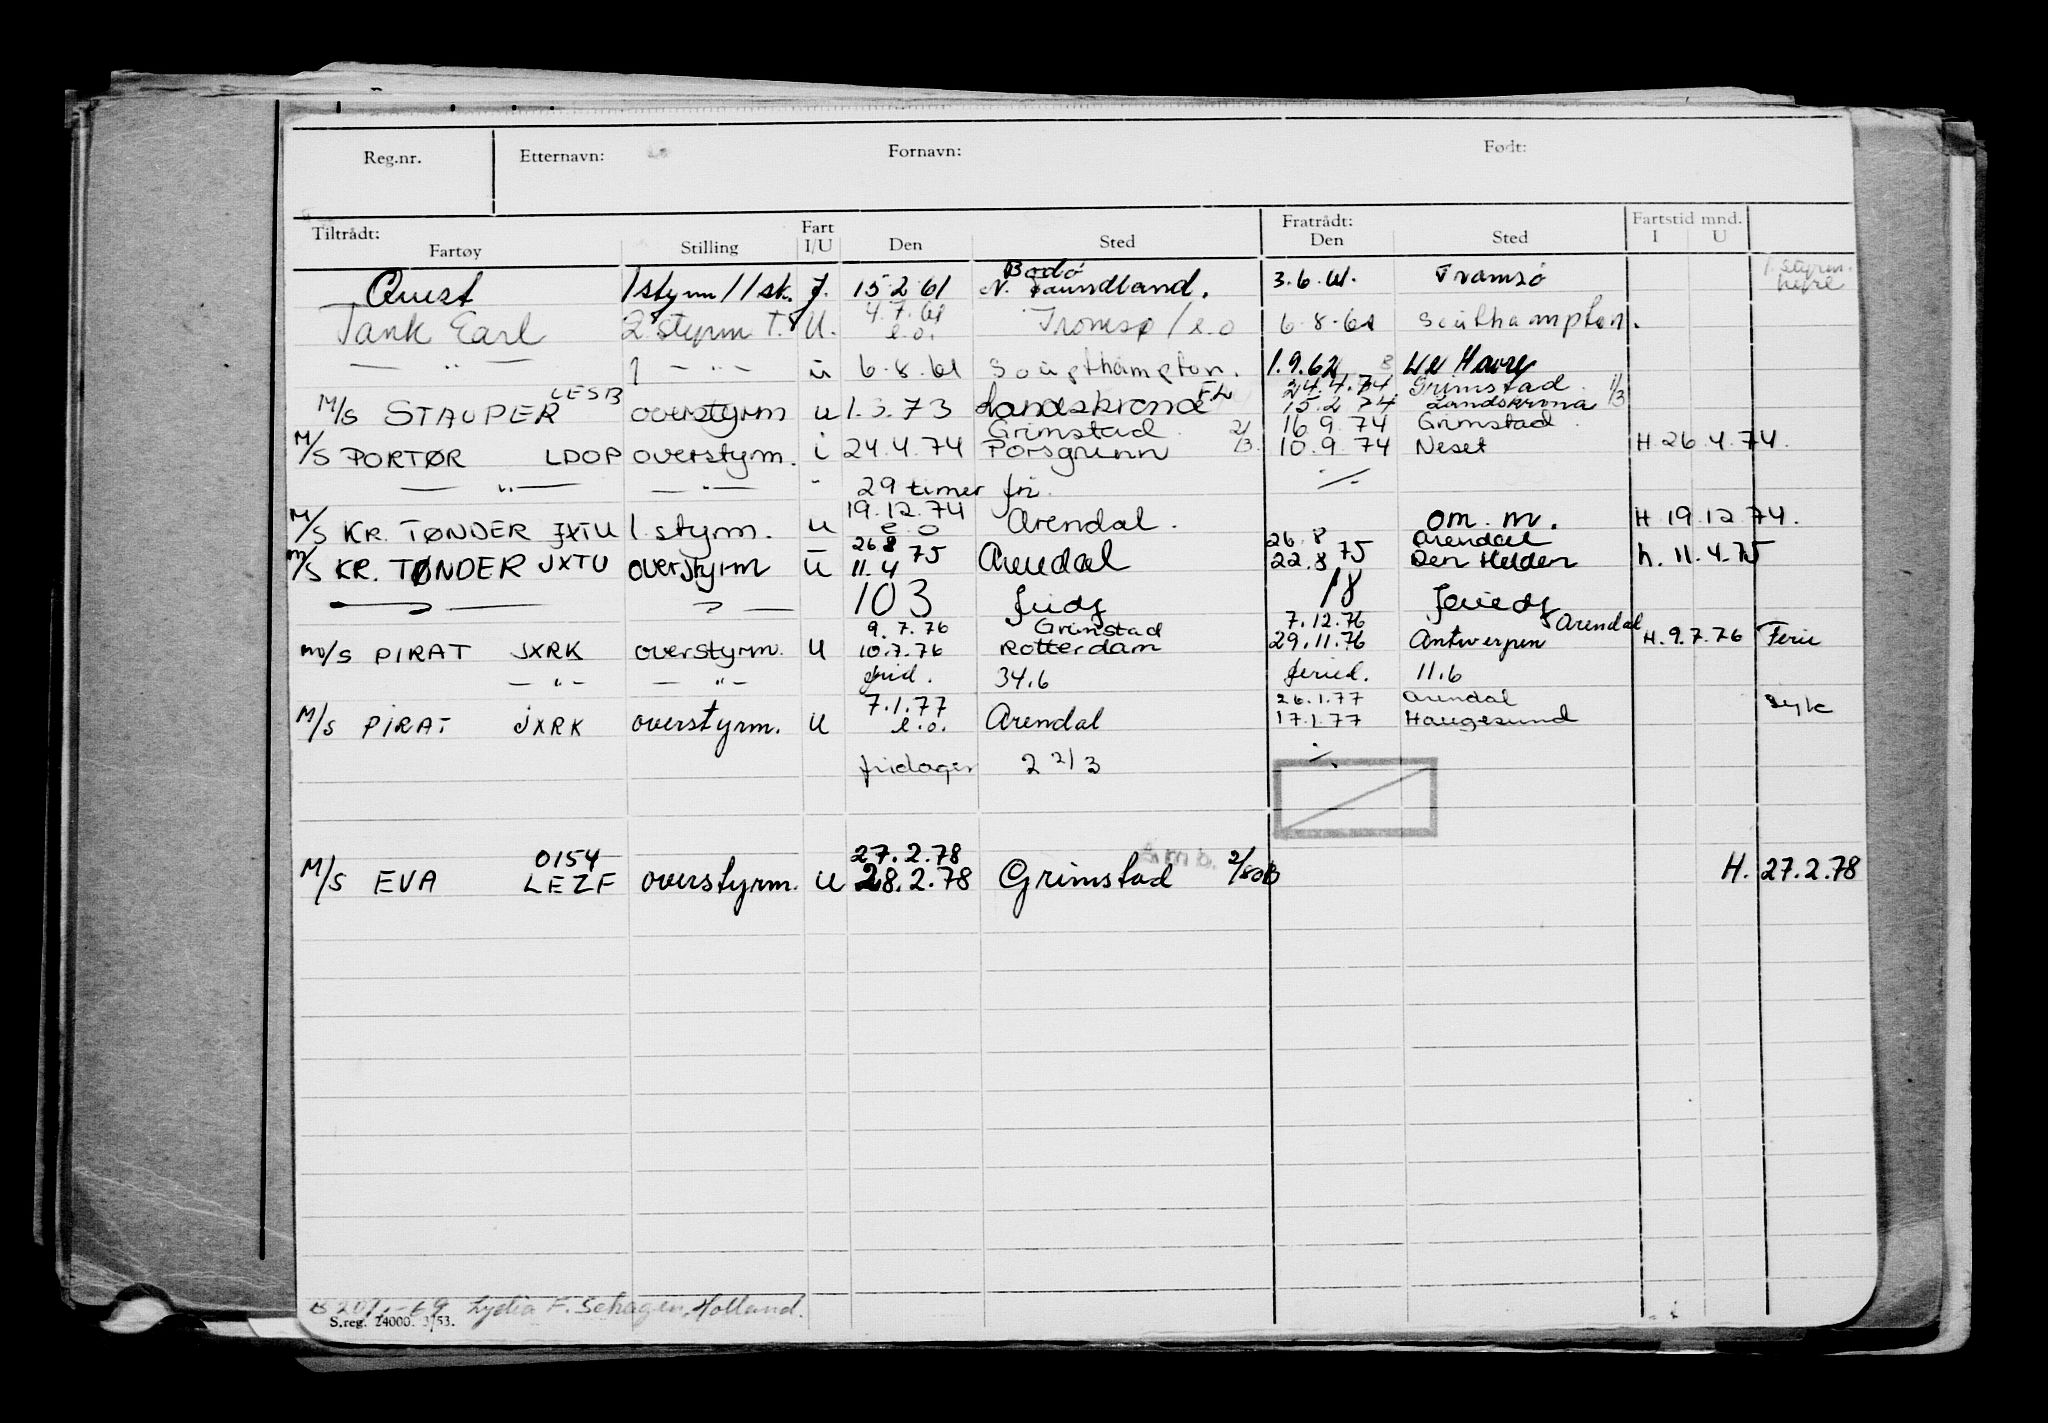 Reg.nr. Etternavn: Fornavn: Født:
Tiltrådt: Fart Fratrådt: Fartstid mnd.
Fartøy Stilling I/U Den Sted Den Sted I U
Bodö
Quest 1 styrm / 1 sk. J. 15.2.61 N. Faundland. 3.6.61. Tromsö 1 styrm. hyre
4.7.61
Tank Earl 2 styrm T. U. e.o. Tromsø / e.o 6.8.61 Southampton.
— " — 1 — " — u 6.8.61 Soupthampton. 1.9.62 Le Havre
LESB 24.4.74 Grimstad 1/3
M/S STAUPER overstyrm u 1.3.73 Landskrona FL 15.2.74 Landskrona
Grimstad 2/3 16.9.74 Grimstad
M/S PORTØR LDOP overstyrm. i 24.4.74 Porsgrunn 10.9.74 Neset H. 26.4.74.
— " — — " — " 29 timer fri. ./.
19.12.74
M/S KR. TØNDER JXTU 1 styrm. u e.o Arendal. om. m. H. 19.12.74.
26.8 26.8 Arendal
M/S KR. TØNDER JXTU overstyrm u 11.4 75 Arendal 22.8 75 Den Helder h. 11.4.75
— " — — " — 103 fridg 18 feriedg
9.7.76 Grimstad 7.12.76 Arendal
M/S PIRAT JXRK overstyrm. u 10.7.76 Rotterdam 29.11.76 Antwerpen H. 9.7.76 Ferie
— " — — " — frid. 34.6 feried. 11.6
7.1.77 26.1.77 Arendal
M/S PIRAT JXRK overstyrm. u e.o. Arendal 17.1.77 Haugesund syk
fridager 2 2/3 ./.
0154 27.2.78
M/S EVA LEZF overstyrm. u 28.2.78 Grimstad H. 27.2.78
Lydia F. Schagen, Holland.
S.reg. 24000. 3/53.